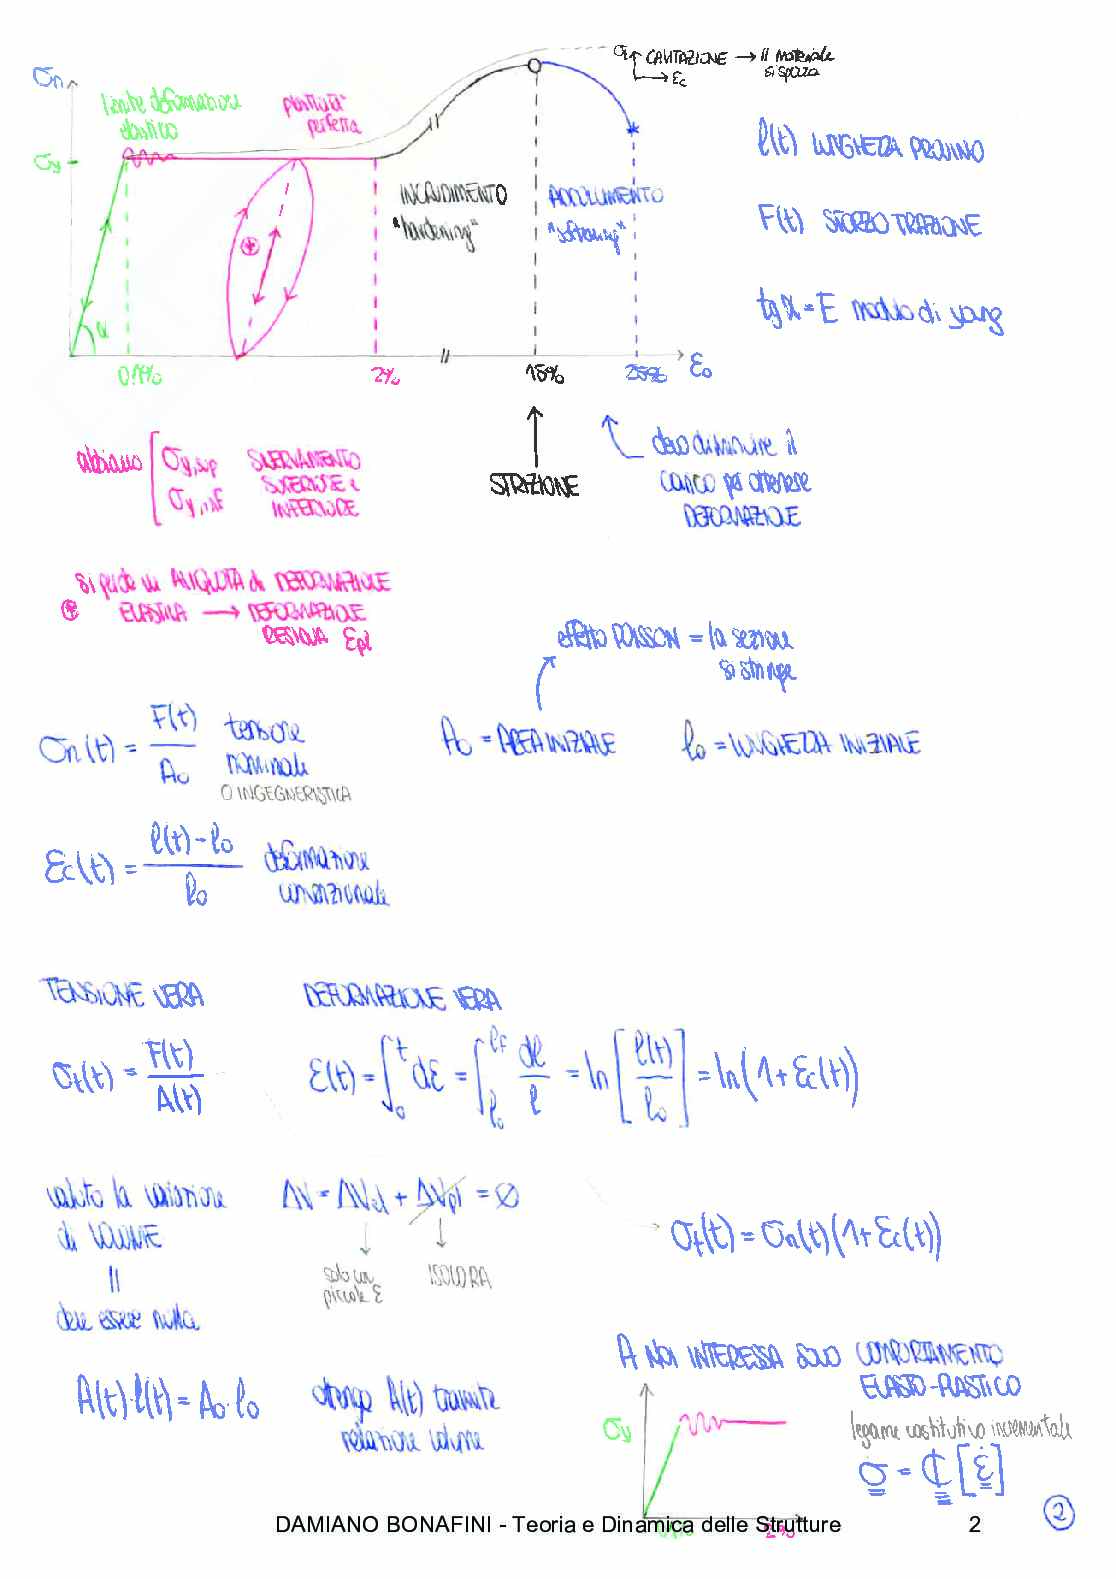 σn
limite deformazione
elastico
plasticità
perfetta
σt CAVITAZIONE → Il materiale
si spezza
εc
σy
l(t) LUNGHEZZA PROVINO
INCRUDIMENTO
"hardening"
ADDOLCIMENTO
"softening"
F(t) SFORZO TRAZIONE
*
α
tgα = E modulo di young
0.1%
2%
15%
25%
εc
abbiamo
σy,sup
σy,inf
SNERVAMENTO
SUPERIORE e
INFERIORE
STRIZIONE
devo diminuire il
carico per ottenere
DEFORMAZIONE
si perde un ALIQUOTA di DEFORMAZIONE
* ELASTICA → DEFORMAZIONE
RESIDUA εpl
effetto POISSON = la sezione
si stringe
σn(t) = F(t) / A0 tensione
nominale
O INGEGNERISTICA
A0 = AREA INIZIALE
l0 = LUNGHEZZA INIZIALE
εc(t) = l(t) - l0 / l0 deformazione
convenzionale
TENSIONE VERA
DEFORMAZIONE VERA
σt(t) = F(t) / A(t)
ε(t) = ∫0^t dε = ∫l0^lf dl / l = ln [l(t) / l0] = ln(1 + εc(t))
valuto la variazione
di VOLUME
=
deve essere nulla
ΔV = ΔVel + ΔVpl = Ø
solo un
piccolo ε
ISOCORA
σt(t) = σn(t)(1 + εc(t))
A NOI INTERESSA SOLO COMPORTAMENTO
ELASTO-PLASTICO
A(t)·l(t) = A0·l0
ottengo A(t) tramite
relazione volume
σy
legame costitutivo incrementale
σ̇ = ℂ[ε̇]
2%
DAMIANO BONAFINI - Teoria e Dinamica delle Strutture 2
2